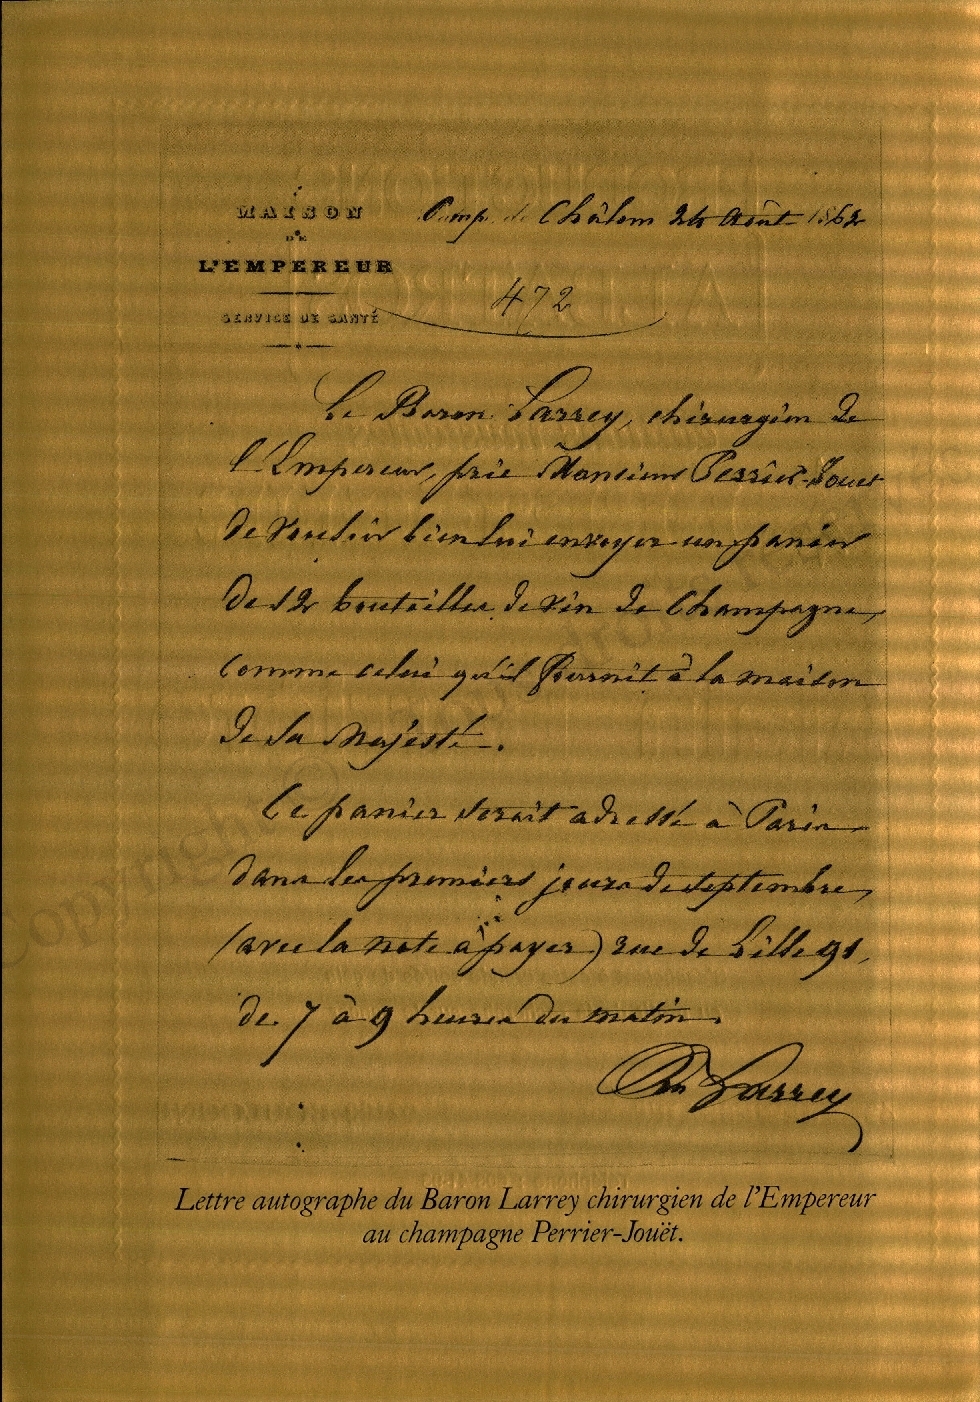 MAISON
DE
L'EMPEREUR
SERVICE DE SANTÉ
Camp de Châlons 24 Août 1862
472
Le Baron Larrey, chirurgien de
l'Empereur, prie Monsieur Perrier-Jouet
de vouloir bien lui envoyer un panier
de 12 bouteilles de vin de Champagne,
comme celui qu'il fournit à la maison
de Sa Majesté.
Ce panier serait adressé à Paris
dans les premiers jours de septembre,
(avec la note à payer) rue de Lille 91,
de 7 à 9 heures du matin.
Bn Larrey
Lettre autographe du Baron Larrey chirurgien de l'Empereur
au champagne Perrier-Jouët.